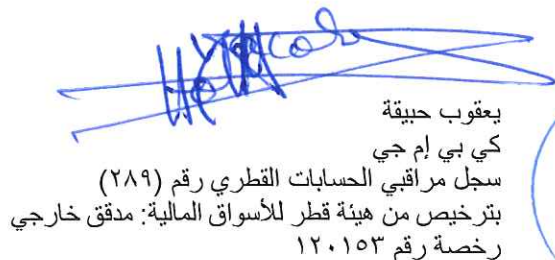 يعقوب حبيقة
كي بي إم جي
سجل مراقبي الحسابات القطري رقم (٢٨٩)
بترخيص من هيئة قطر للأسواق المالية: مدقق خارجي
رخصة رقم ١٢٠١٥٣